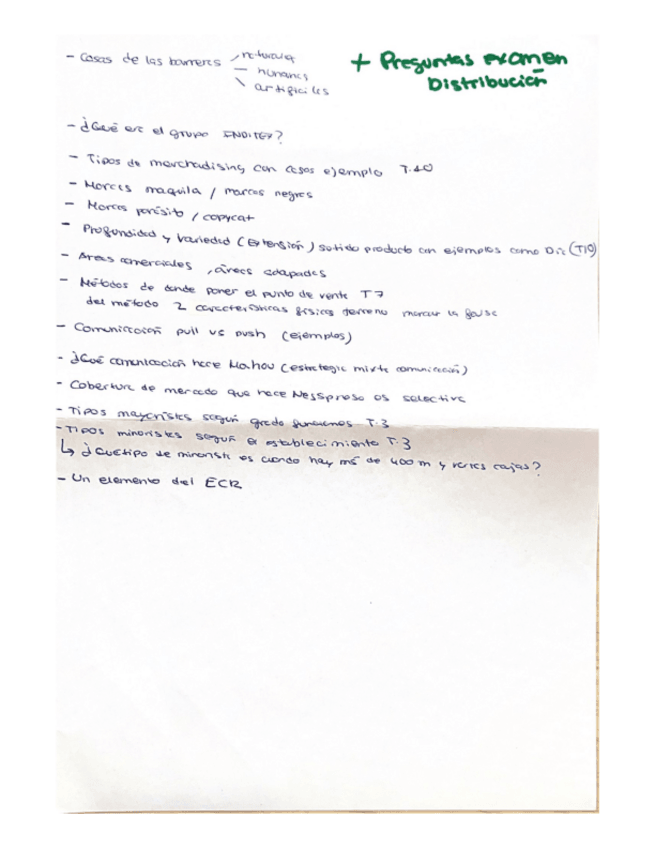 + Preguntas examen
Distribución
- Casas de las barreras
naturales
- humanas
artificiales
- ¿Qué es el grupo INDITEX?
- Tipos de merchadising con casos ejemplo T.10
- Marcas maquila / marcas negras
- Marcas parásito / copycat
- Profundidad y variedad (extensión) surtido producto con ejemplos como Dia (T10)
- Áreas comerciales, áreas adapadas
- Métodos de donde poner el punto de venta T7
del método 2 características físicas terreno marcar la falsa
- Comunicación pull vs push (ejemplos)
- ¿Qué comunicación hace Mahou (estrategia mixta comunicación)
- Cobertura de mercado que hace Nesspreso es selectiva
- Tipos mayoristas según grado funciones T.3
- Tipos minoristas según el establecimiento T.3
↳ ¿Qué tipo de minorista es cuando hay más de 400 m y varias cajas?
- Un elemento del ECR